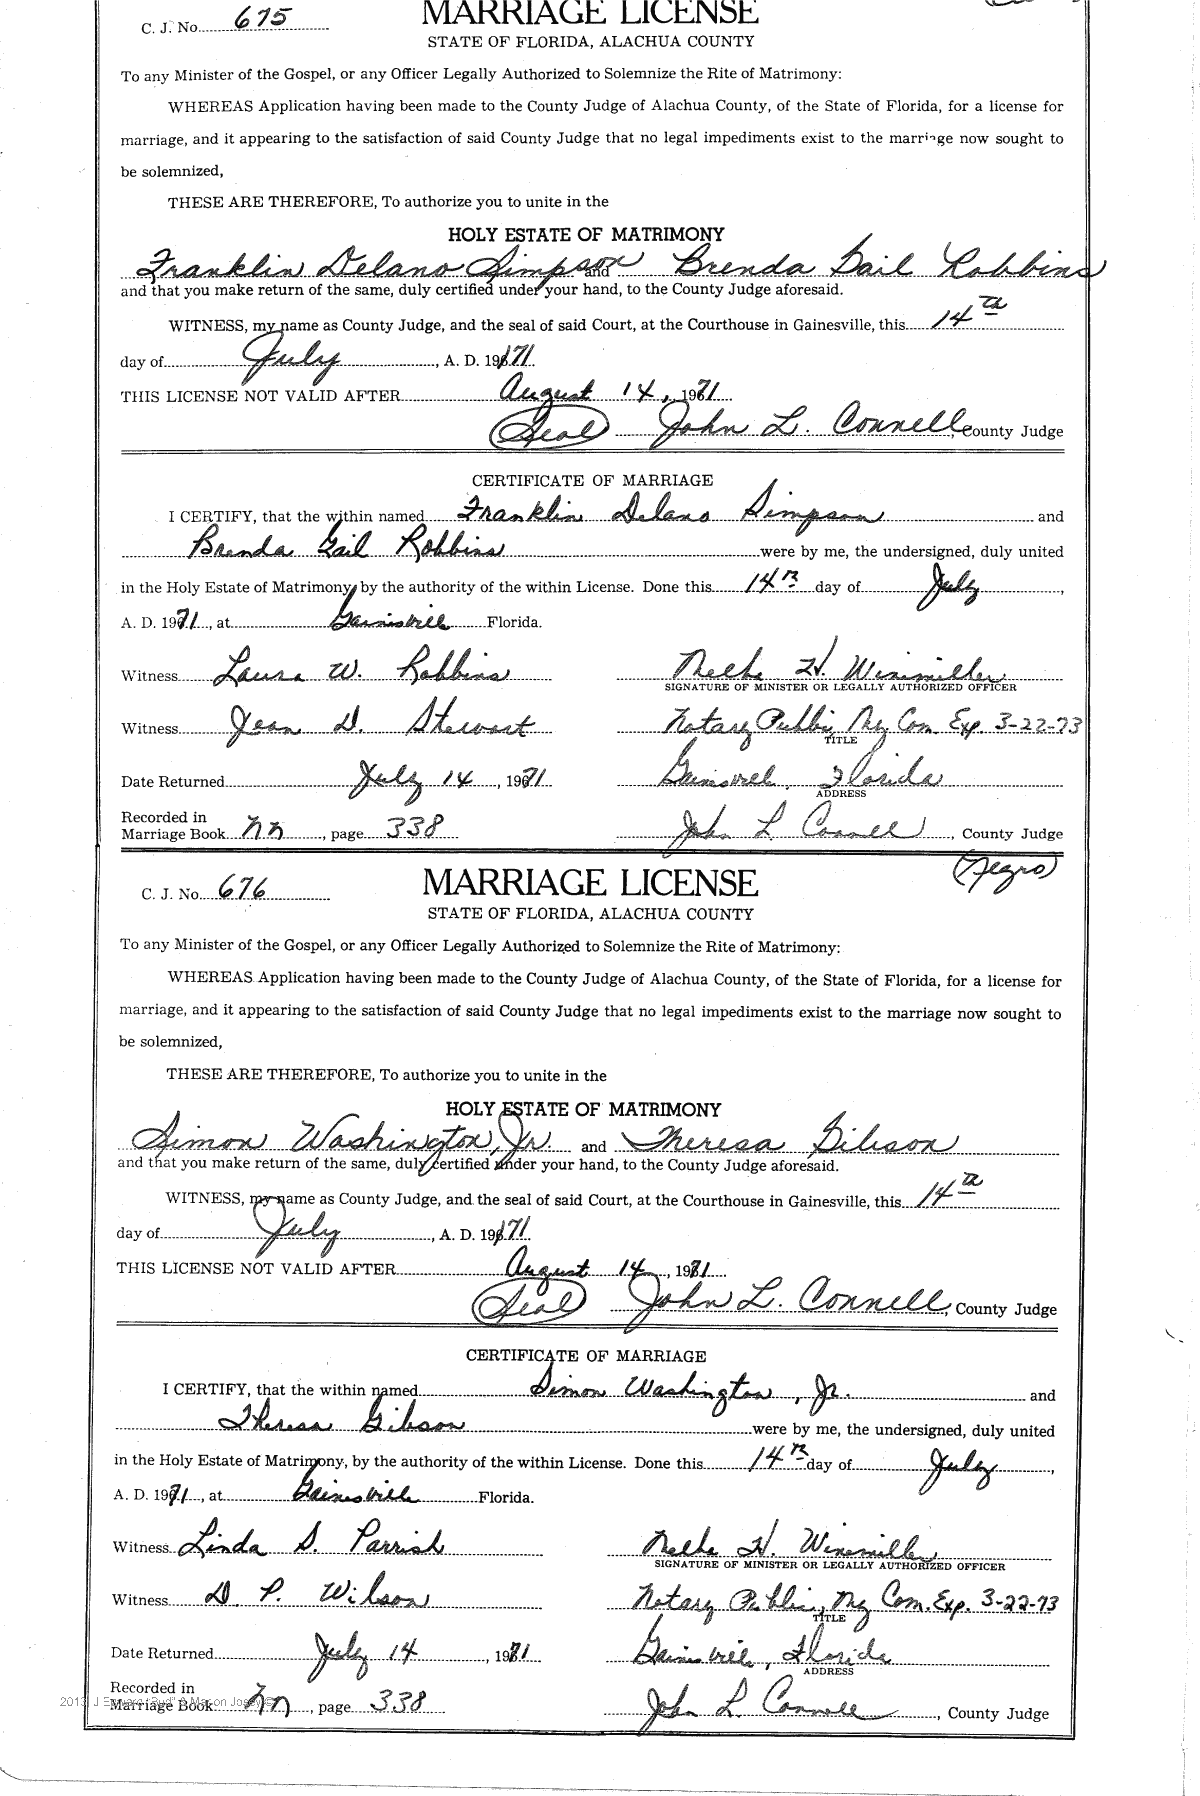 C. J. No. 675
MARRIAGE LICENSE
STATE OF FLORIDA, ALACHUA COUNTY
To any Minister of the Gospel, or any Officer Legally Authorized to Solemnize the Rite of Matrimony:
WHEREAS Application having been made to the County Judge of Alachua County, of the State of Florida, for a license for
marriage, and it appearing to the satisfaction of said County Judge that no legal impediments exist to the marriage now sought to
be solemnized,
THESE ARE THEREFORE, To authorize you to unite in the
HOLY ESTATE OF MATRIMONY
Franklin Delano Simpson and Brenda Gail Robbins
and that you make return of the same, duly certified under your hand, to the County Judge aforesaid.
WITNESS, my name as County Judge, and the seal of said Court, at the Courthouse in Gainesville, this 14th
day of July, A. D. 1971.
THIS LICENSE NOT VALID AFTER August 14, 1971
(Seal) John L. Connell, County Judge
CERTIFICATE OF MARRIAGE
I CERTIFY, that the within named Franklin Delano Simpson and
Brenda Gail Robbins were by me, the undersigned, duly united
in the Holy Estate of Matrimony, by the authority of the within License. Done this 14th day of July,
A. D. 1971, at Gainesville Florida.
Witness Laura W. Robbins Nelke H. Winemiller
SIGNATURE OF MINISTER OR LEGALLY AUTHORIZED OFFICER
Witness Jean D. Stewart Notary Public, My Com. Exp. 3-22-73
TITLE
Date Returned July 14, 1971 Gainesville, Florida
ADDRESS
Recorded in
Marriage Book nn, page 338 John L Connell, County Judge
(Negro)
C. J. No. 676
MARRIAGE LICENSE
STATE OF FLORIDA, ALACHUA COUNTY
To any Minister of the Gospel, or any Officer Legally Authorized to Solemnize the Rite of Matrimony:
WHEREAS Application having been made to the County Judge of Alachua County, of the State of Florida, for a license for
marriage, and it appearing to the satisfaction of said County Judge that no legal impediments exist to the marriage now sought to
be solemnized,
THESE ARE THEREFORE, To authorize you to unite in the
HOLY ESTATE OF MATRIMONY
Simon Washington, Jr. and Theresa Gibson
and that you make return of the same, duly certified under your hand, to the County Judge aforesaid.
WITNESS, my name as County Judge, and the seal of said Court, at the Courthouse in Gainesville, this 14th
day of July, A. D. 1971.
THIS LICENSE NOT VALID AFTER August 14, 1971
(Seal) John L. Connell, County Judge
CERTIFICATE OF MARRIAGE
I CERTIFY, that the within named Simon Washington, Jr. and
Theresa Gibson were by me, the undersigned, duly united
in the Holy Estate of Matrimony, by the authority of the within License. Done this 14th day of July,
A. D. 1971, at Gainesville Florida.
Witness Linda S. Parrish Nelke H. Winemiller
SIGNATURE OF MINISTER OR LEGALLY AUTHORIZED OFFICER
Witness D P. Wilson Notary Public, My Com. Exp. 3-22-73
TITLE
Date Returned July 14, 1971 Gainesville, Florida
ADDRESS
Recorded in
Marriage Book nn, page 338 John L Connell, County Judge